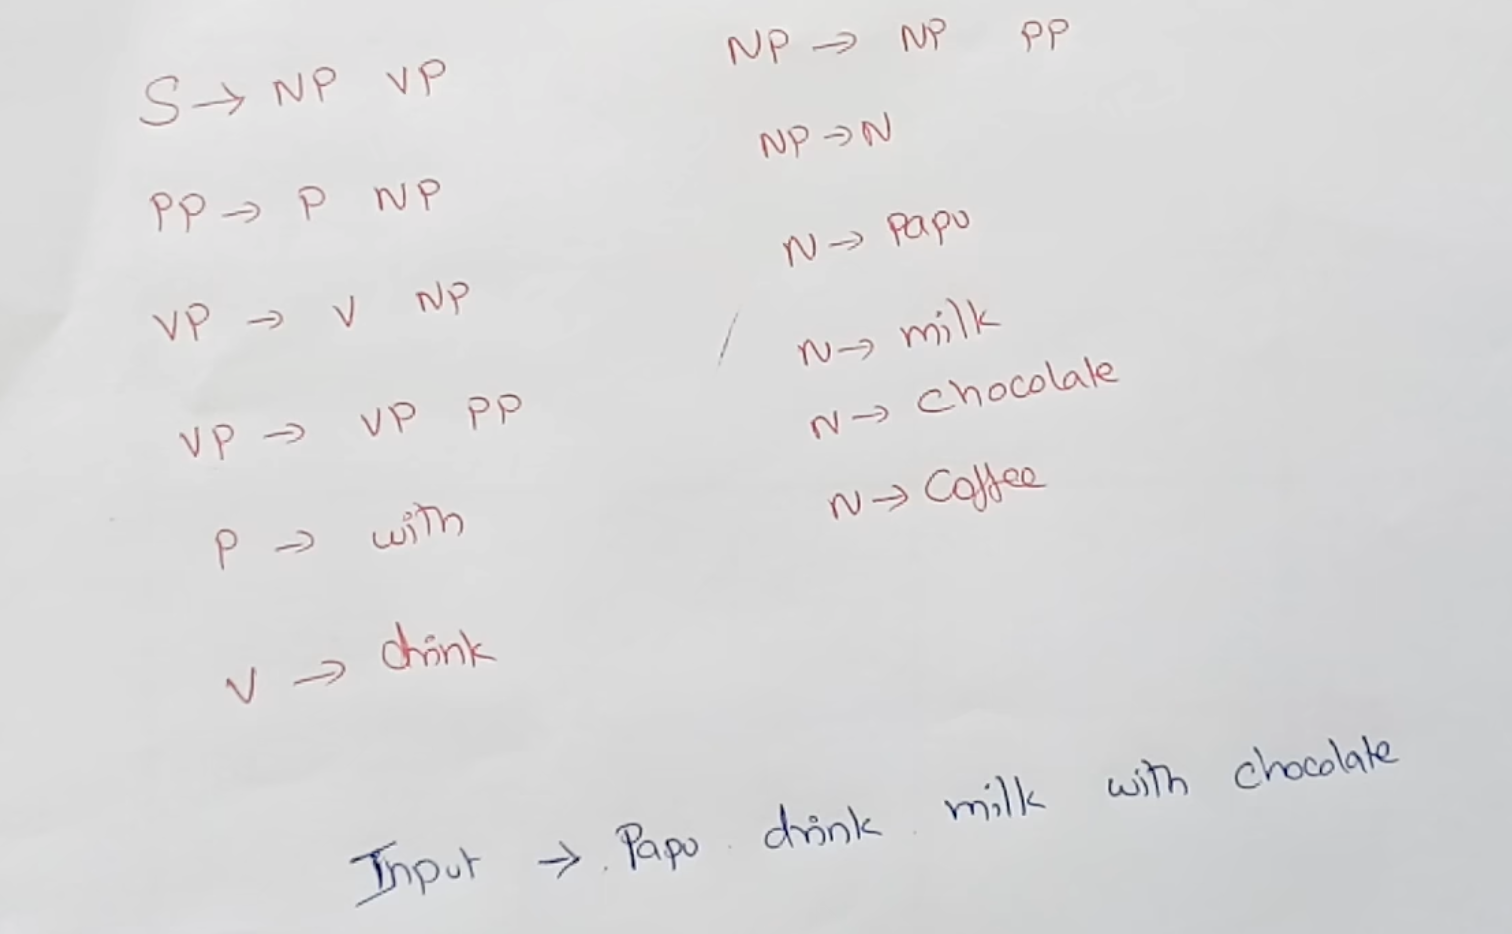 S → NP VP
PP → P NP
VP → V NP
VP → VP PP
P → with
V → drink
NP → NP PP
NP → N
N → Papu
N → milk
N → chocolate
N → Coffee
Input → Papu drink milk with chocolate